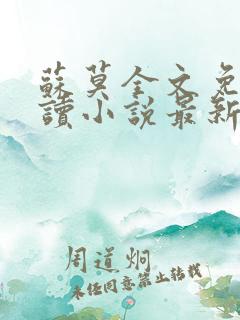 蘇莫全文免
讀小說最新
周道炯
未经同意禁止转载